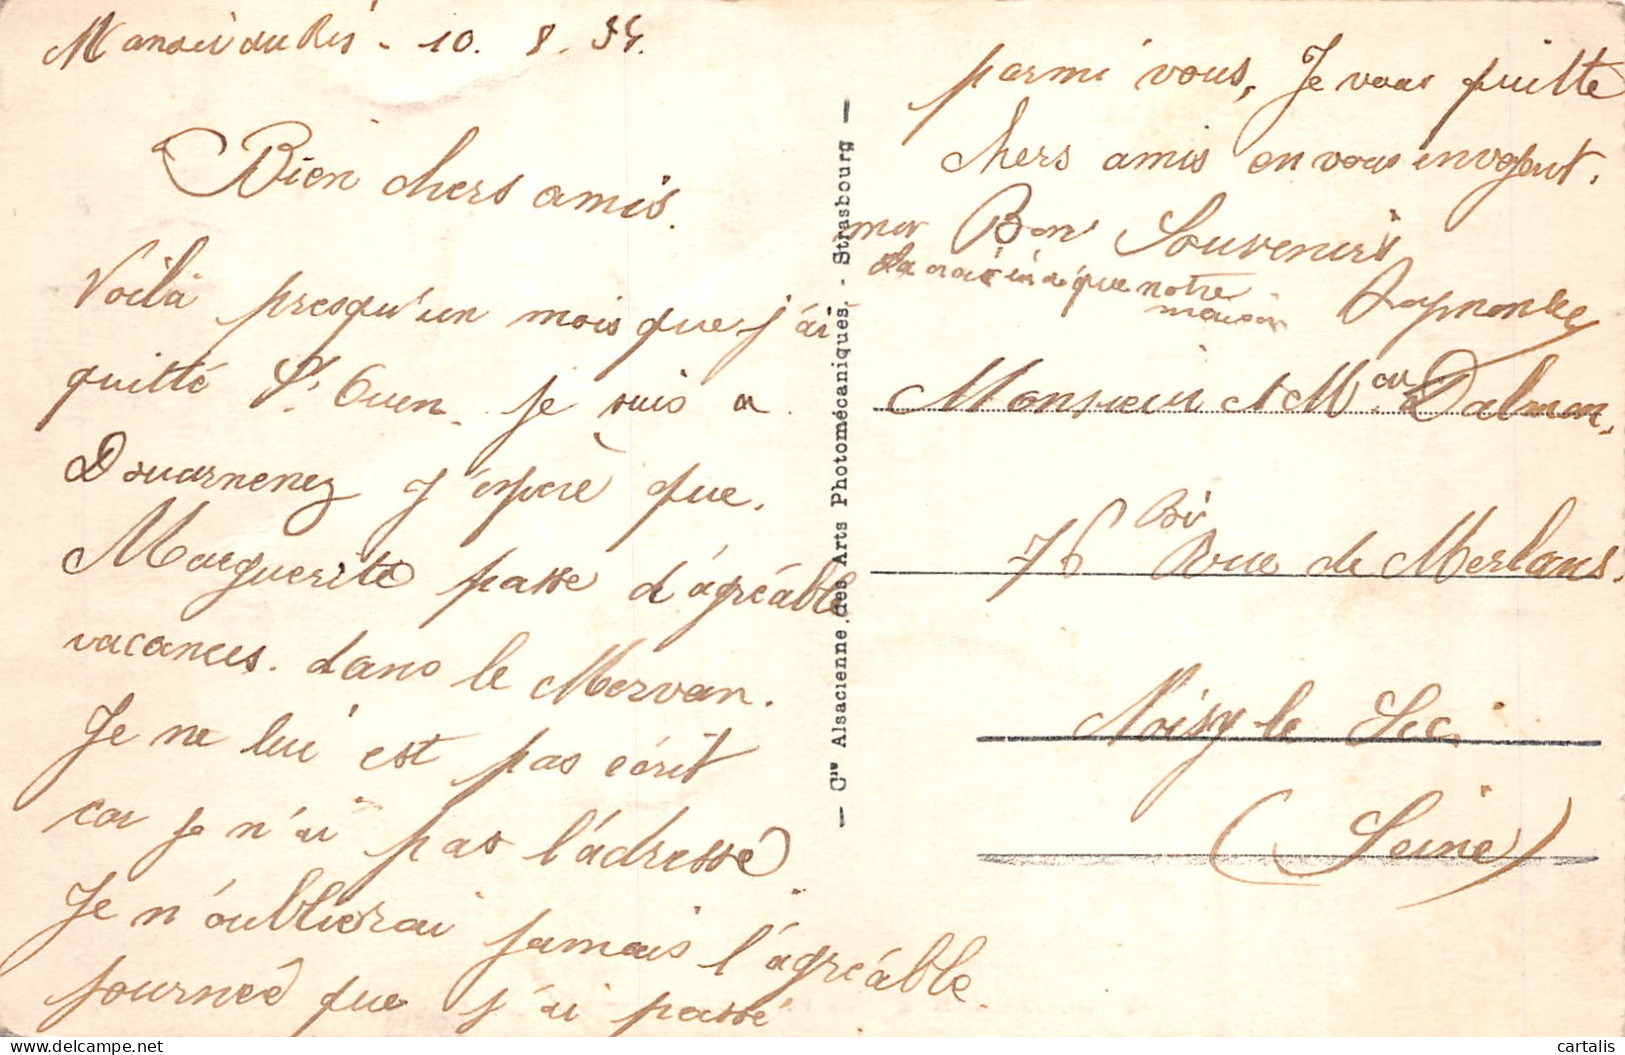 Manoir du Ris - 10. 8. 34.
Bien chers amis.
Voilà presqu'un mois que j'ai
quitté St. Ouen. je suis a
Douarnenez j'espère que.
Marguerite passe d'agréable
vacances. dans le Morvan.
Je ne lui est pas écrit
car je n'ai pas l'adresse.
Je n'oublierai jamais l'agréable.
journeé que j'ai passé
parmi vous, Je vous quitte
chers amis en vous envoyent.
mes Bons Souvenirs
La croix indique notre
maison
Raymonde
Monsieur et Me Dalmon,
76 Bis Rue de Merlans.
Noisy-le Sec.
(Seine)
— Cie Alsacienne des Arts Photomécaniques. - Strasbourg —
cartalis